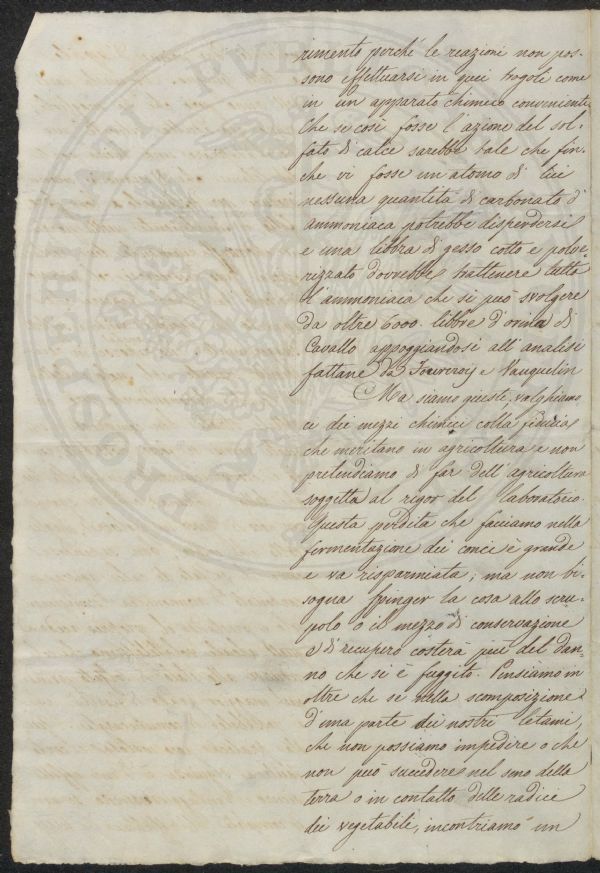 rimento perché le reazioni non pos-
sono effettuarsi in quei trogoli come
in un apparato chimico conveniente
Che se così fosse l'azione del sol-
fato di calce sarebbe tale che fin-
che vi fosse un atomo di lui
nessuna quantità di carbonato d'
ammoniaca potrebbe disperdersi
e una libbra di gesso cotto e polve-
rizzato dovrebbe trattenere tutta
l'ammoniaca che si può svolgere
da oltre 6000 libbre d'orina di
Cavallo appoggiandosi all'analisi
fattane da Fourcroij e Vauquelin
Ma siamo giusti, volghiamo
ci dei mezzi chimici colla fiducia
che meritano in agricoltura e non
pretendiamo di far dell'agricoltura
soggetta al rigor del laboratorio.
Questa perdita che facciamo nella
fermentazione dei conci è grande
e va risparmiata; ma non bi-
sogna spinger la cosa allo scru-
polo o il mezzo di conservazione
e di recupero costerà più del dan-
no che si è fuggito. Pensiamo in
oltre che se nella scomposizione
d'una parte dei nostri letami,
che non possiamo impedire o che
non può succedere nel seno della
terra o in contatto delle radici
dei vegetabili, incontriamo un
PROSPERITATI PUB